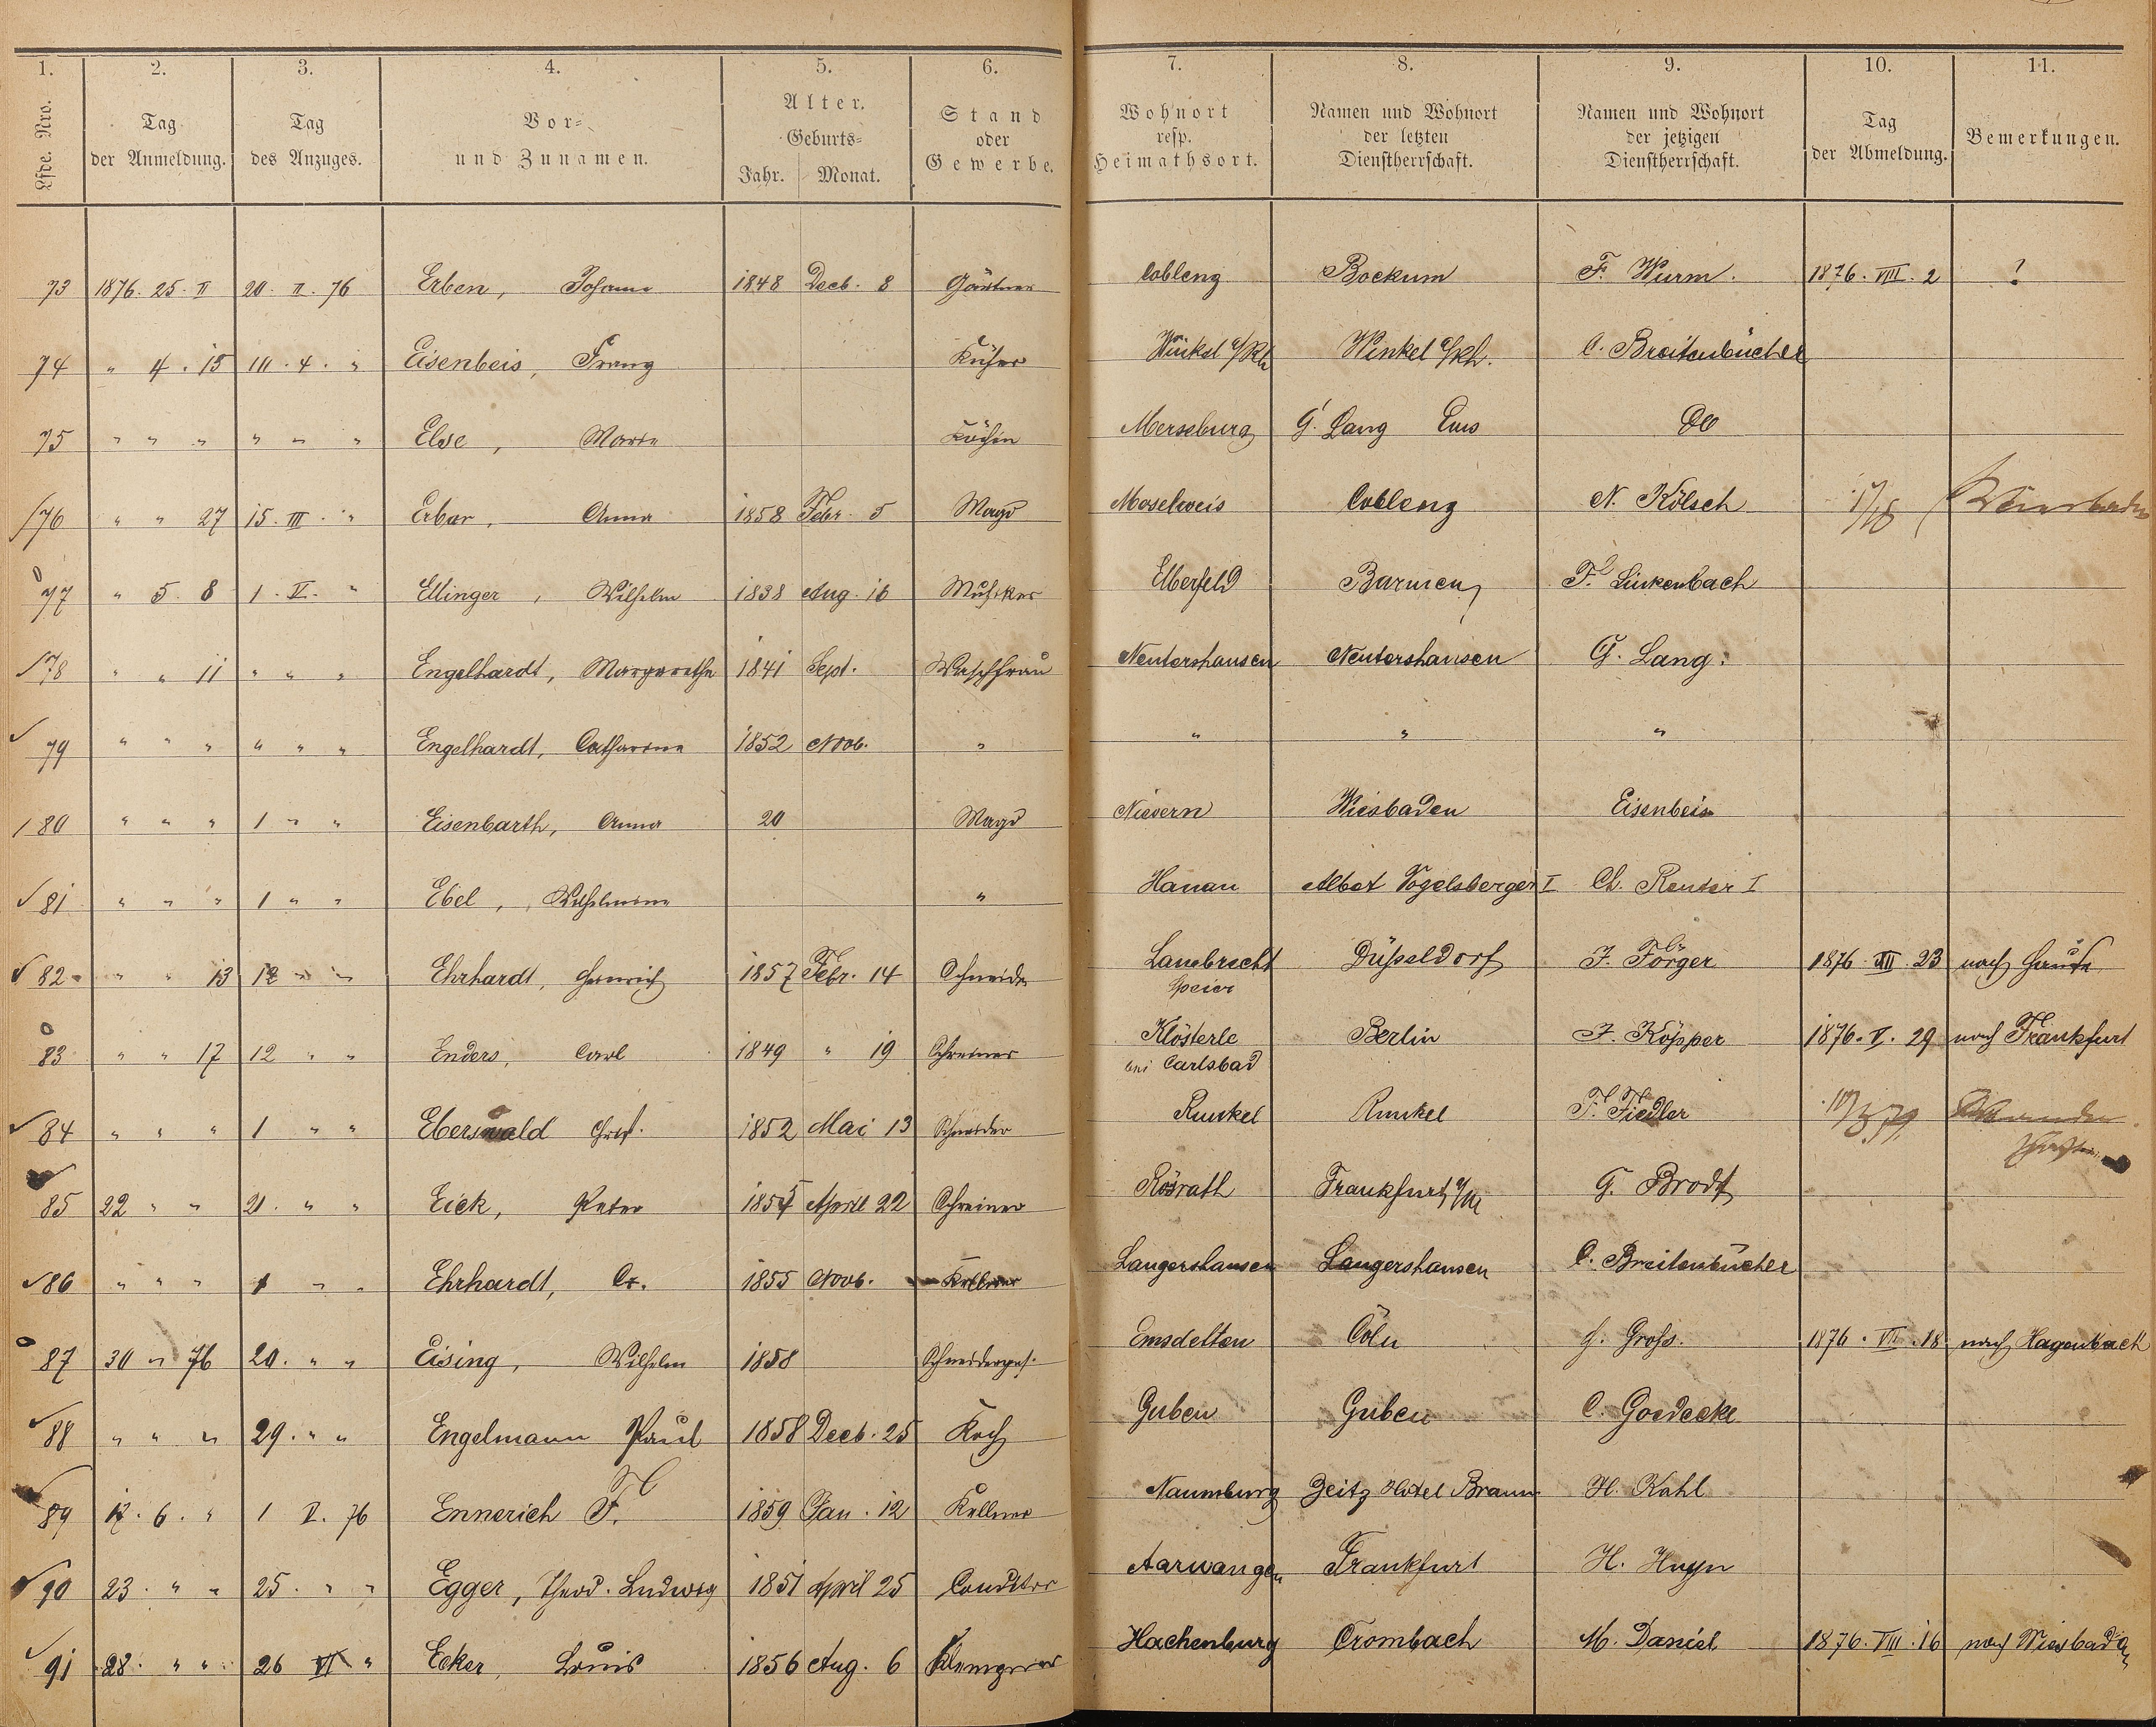 1. 2. 3. 4. 5. 6. 7. 8. 9. 10. 11.
Lfde. Nro. Tag der Anmeldung. Tag des Anzuges. Vor- und Zunamen. Alter. Geburts- Jahr. Monat. Stand oder Gewerbe. Wohnort resp. Heimathsort. Namen und Wohnort der letzten Dienstherrschaft. Namen und Wohnort der jetzigen Dienstherrschaft. Tag der Abmeldung. Bemerkungen.
73 1876. 25. II 20. II. 76 Erben, Johann 1848 Decb. 8 Gärtner Coblenz Bockum F. Wurm. 1876. VIII. 2 ?
74 " 4. 15 III. 4. " Eisenbeis, Franz Küfer Winkel a/Rh Winkel a/Rh. C. Breitenbücher
75 " " " " " " Else, Marie Köchin Merseburg G. Lang Ems do
76 " " 27 15. III. " Erbar, Anna 1858 Febr. 5 Magd Moselweis Coblenz N. Kölsch
77 " 5. 8 1. V. " Ellinger, Wilhelm 1838 Aug. 16 Musiker Elberfeld Barmen F. Linkenbach
78 " " 11 " " " Engelhardt, Margarethe 1841 Sept. Waschfrau Nentershausen Nentershausen G. Lang.
79 " " " " " " Engelhardt, Catharina 1852 Novb. " " " "
80 " " " 1 " " Eisenbarth, Anna 20 Magd Nievern Wiesbaden Eisenbeis
81 " " " 1 " " Ebel, Wilhelmine " Hanau Albert Vogelsberger I Ch. Reuter I
82 " " 13 12 " " Ehrhardt, Heinrich 1857 Febr. 14 Schneider Lambrecht Düsseldorf J. Förger 1876. 23 nach Hause
Speier
83 " " 17 12 " " Enders, Carl 1849 " 19 Schreiner Klösterle Berlin J. Köpper 1876. V. 29 nach Frankfurt
bei Carlsbad
84 " " " 1 " " Eberswald Christ. 1852 Mai 13 Schneider Runkel Runkel F. Fiedler
85 22 " " 21. " " Eick, Peter 1855 April 22 Schreiner Rösrath Frankfurt a/M G. Brodt
86 " " " 1 " " Ehrhardt, Cr. 1855 Novb. Kellner Langershausen Langershausen C. Breitenbücher
87 30 " 76 20. " " Eising, Wilhelm 1858 Schneiderges. Emsdetten Cöln H. Gross. 1876. VII. 18 nach Hagenbach
88 " " " 29. " " Engelmann Paul 1858 Decb. 25 Koch Guben Guben C. Goedecke
89 12. 6. " 1 V. 76 Ennerich F. 1859 Jan. 12 Kellner Naumburg Zeitz Hotel Braun H. Kahl
90 23. " " 25. " " Egger, Theod. Ludwig 1851 April 25 Conditor Aarwangen Frankfurt H. Huyn
91 28. " " 26 VI " Ecker, Louis 1856 Aug. 6 Klempner Hachenburg Crombach M. Daniel 1876. VIII. 16 nach Wiesbaden